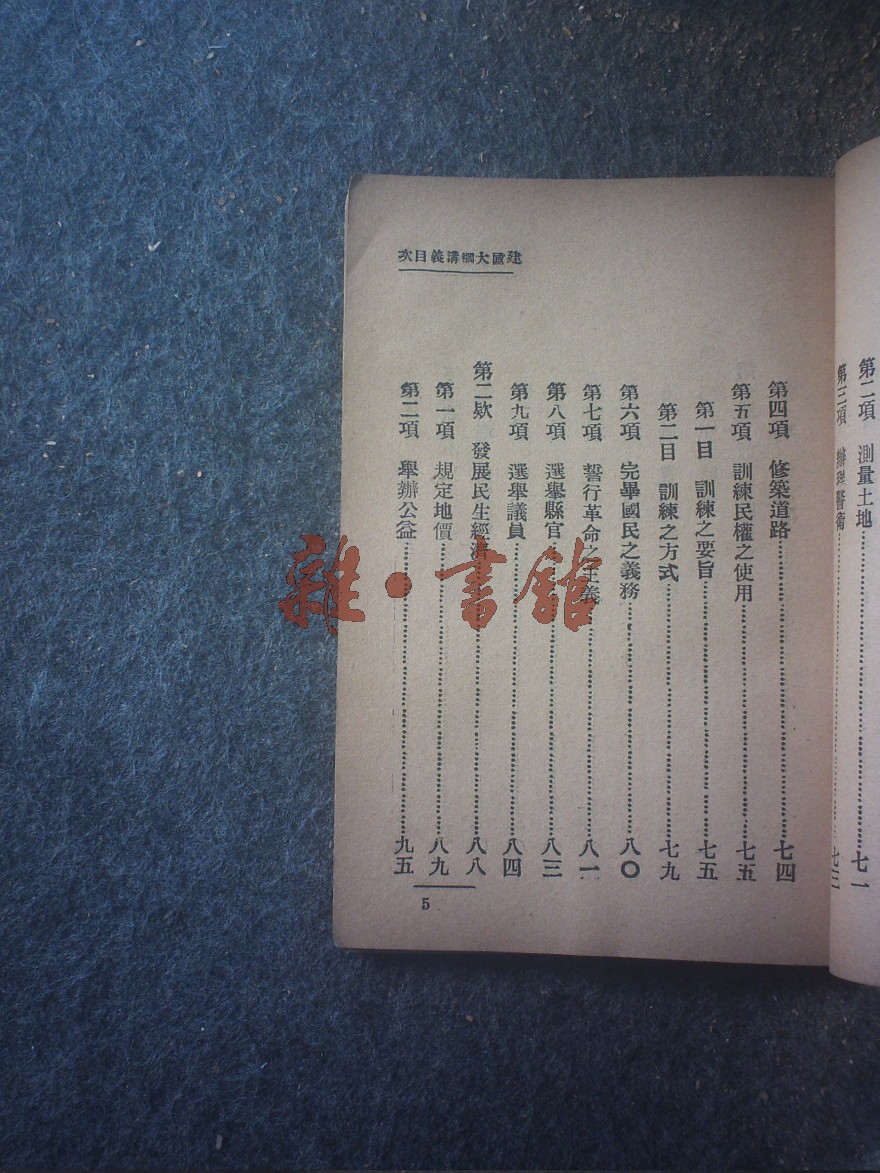 建國大綱講義目次
第二項　測量土地……七一
第三項　辦理警衛……七三
第四項　修築道路……七四
第五項　訓練民權之使用……七五
第一目　訓練之要旨……七五
第二目　訓練之方式……七九
第六項　完畢國民之義務……八〇
第七項　誓行革命之主義……八一
第八項　選舉縣官……八三
第九項　選舉議員……八四
第二欵　發展民生經濟……八八
第一項　規定地價……八九
第二項　舉辦公益……九五
5
雜·書館